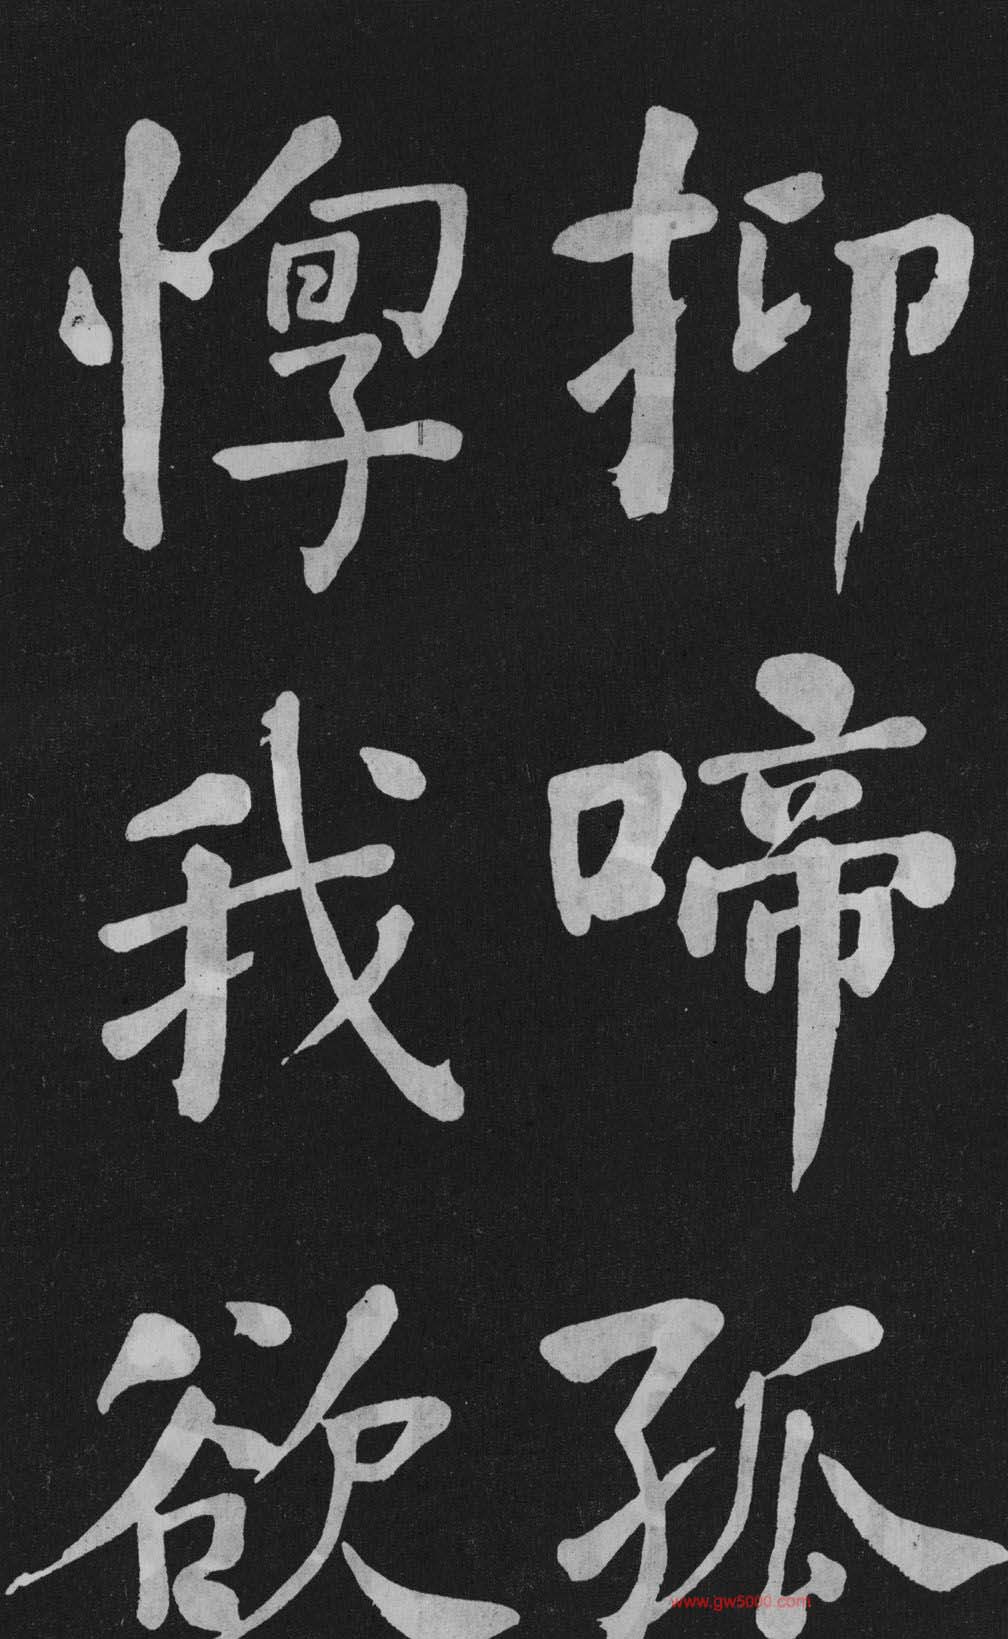 抑啼孤
惸我欲
www.gw5000.com